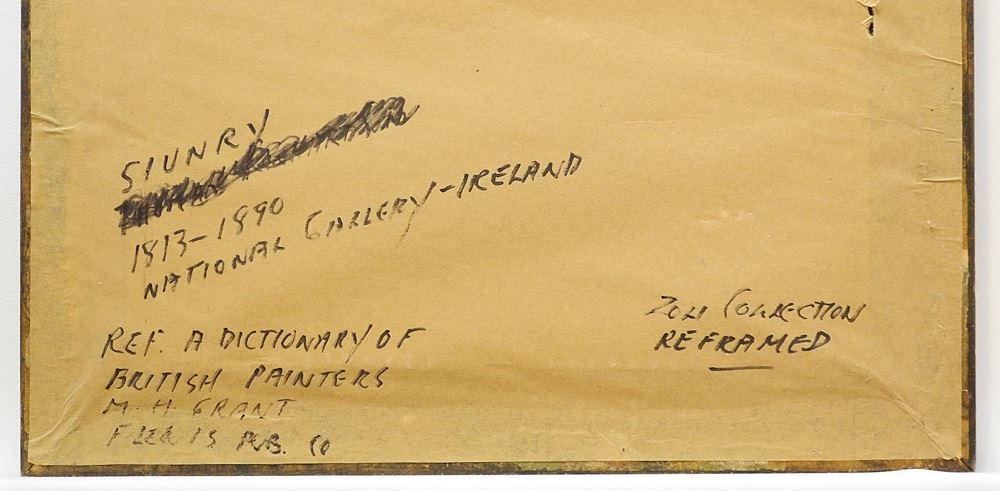 SIUNRY
1813-1890
NATIONAL GALLERY-IRELAND
REF. A DICTIONARY OF
BRITISH PAINTERS
M. H. GRANT
PUB. CO
COLLECTION
REFRAMED